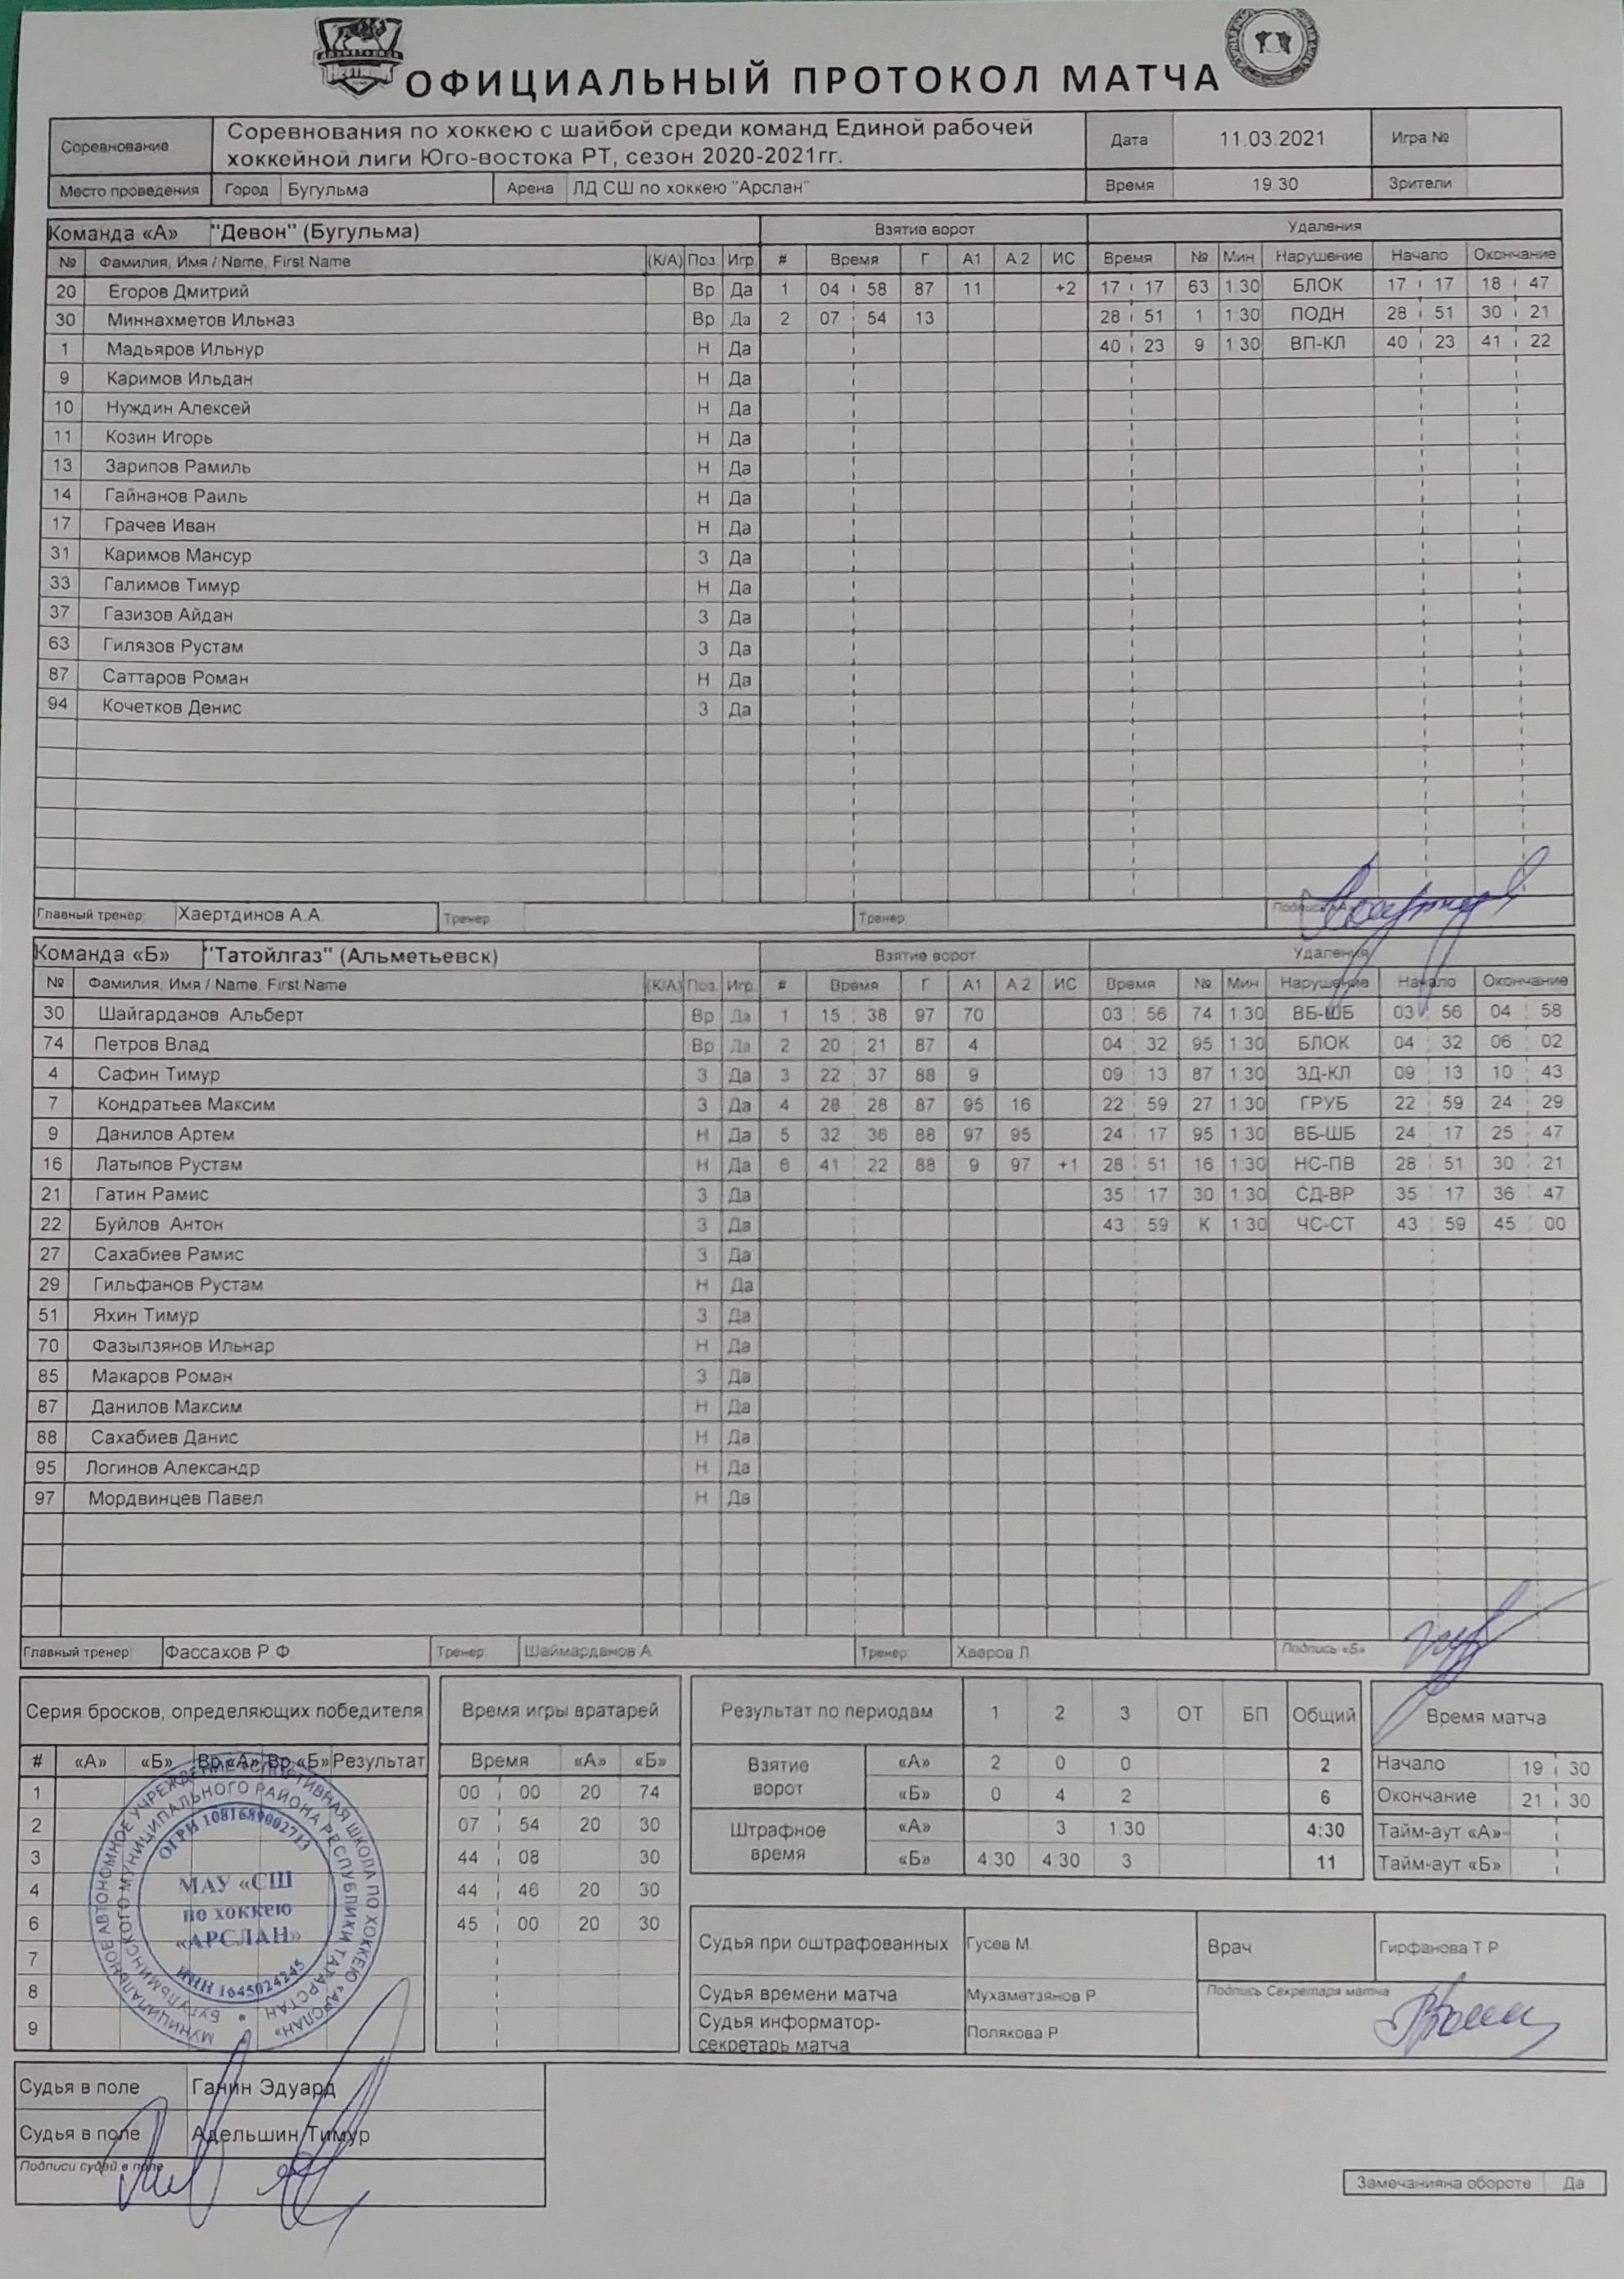 ОФИЦИАЛЬНЫЙ ПРОТОКОЛ МАТЧА
Соревнование Соревнования по хоккею с шайбой среди команд Единой рабочей хоккейной лиги Юго-востока РТ, сезон 2020-2021гг. Дата 11.03.2021 Игра №
Место проведения Город Бугульма Арена ЛД СШ по хоккею "Арслан" Время 19.30 Зрители
Команда «А» "Девон" (Бугульма) Взятие ворот Удаления
№ Фамилия, Имя / Name, First Name (К/А) Поз. Игр # Время Г А1 А 2 ИС Время № Мин Нарушение Начало Окончание
20 Егоров Дмитрий Вр Да 1 04 58 87 11 +2 17 17 63 1.30 БЛОК 17 17 18 47
30 Миннахметов Ильназ Вр Да 2 07 54 13 28 51 1 1:30 ПОДН 28 51 30 21
1 Мадьяров Ильнур Н Да 40 23 9 1 30 ВП-КЛ 40 23 41 22
9 Каримов Ильдан Н Да
10 Нуждин Алексей Н Да
11 Козин Игорь Н Да
13 Зарипов Рамиль Н Да
14 Гайнанов Раиль Н Да
17 Грачев Иван Н Да
31 Каримов Мансур З Да
33 Галимов Тимур Н Да
37 Газизов Айдан З Да
63 Гилязов Рустам З Да
87 Саттаров Роман Н Да
94 Кочетков Денис З Да
Главный тренер Хаертдинов А.А. Тренер Тренер
Команда «Б» "Татойлгаз" (Альметьевск) Взятие ворот Удаления
№ Фамилия, Имя / Name, First Name (К/А) Поз. Игр. # Время Г А1 А 2 ИС Время № Мин Нарушение Начало Окончание
30 Шайгарданов Альберт Вр Да 1 15 38 97 70 03 56 74 1.30 ВБ-ШБ 03 56 04 58
74 Петров Влад Вр Да 2 20 21 87 4 04 32 95 1.30 БЛОК 04 32 06 02
4 Сафин Тимур З Да 3 22 37 88 9 09 13 87 1.30 ЗД-КЛ 09 13 10 43
7 Кондратьев Максим З Да 4 28 28 87 95 16 22 59 27 1.30 ГРУБ 22 59 24 29
9 Данилов Артем Н Да 5 32 36 88 97 95 24 17 95 1.30 ВБ-ШБ 24 17 25 47
16 Латыпов Рустам Н Да 6 41 22 88 9 97 +1 28 51 16 1:30 НС-ПВ 28 51 30 21
21 Гатин Рамис З Да 35 17 30 1 30 СД-ВР 35 17 36 47
22 Буйлов Антон З Да 43 59 К 1 30 ЧС-СТ 43 59 45 00
27 Сахабиев Рамис З Да
29 Гильфанов Рустам Н Да
51 Яхин Тимур З Да
70 Фазылзянов Ильнар Н Да
85 Макаров Роман З Да
87 Данилов Максим Н Да
88 Сахабиев Данис Н Да
95 Логинов Александр Н Да
97 Мордвинцев Павел Н Да
Главный тренер Фассахов Р Ф Тренер Шаймарданов А Тренер Хавров Л Подпись «Б»
Серия бросков, определяющих победителя
# «А» «Б» Вр «А» Вр «Б» Результат
1
2
3
4
6
7
8
9
МУНИЦИПАЛЬНОЕ АВТОНОМНОЕ УЧРЕЖДЕНИЕ СПОРТИВНАЯ ШКОЛА ПО ХОККЕЮ «АРСЛАН»
БУГУЛЬМИНСКОГО МУНИЦИПАЛЬНОГО РАЙОНА РЕСПУБЛИКИ ТАТАРСТАН
ОГРН 1081689002713
МАУ «СШ
по хоккею
«АРСЛАН»
ИНН 1645024245
Время игры вратарей
Время «А» «Б»
00 00 20 74
07 54 20 30
44 08 30
44 46 20 30
45 00 20 30
Результат по периодам 1 2 3 ОТ БП Общий
Взятие ворот «А» 2 0 0 2
«Б» 0 4 2 6
Штрафное время «А» 3 1:30 4:30
«Б» 4:30 4:30 3 11
Время матча
Начало 19 30
Окончание 21 30
Тайм-аут «А»
Тайм-аут «Б»
Судья при оштрафованных Гусев М. Врач Гирфанова Т Р
Судья времени матча Мухаметзянов Р Подпись Секретаря матча
Судья информатор-секретарь матча Полякова Р
Судья в поле Ганин Эдуард
Судья в поле Адельшин Тимур
Подписи судей в поле
Замечанияна обороте Да